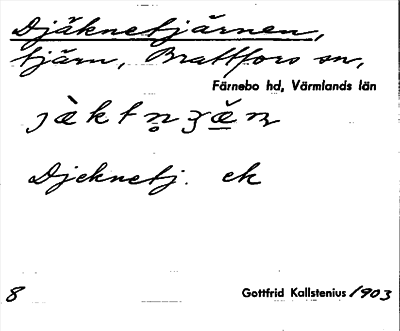 Djäknetjärnen,
tjärn, Brattfors sn,
Färnebo hd, Värmlands län
Djeknetj. ek
8 Gottfrid Kallstenius 1903